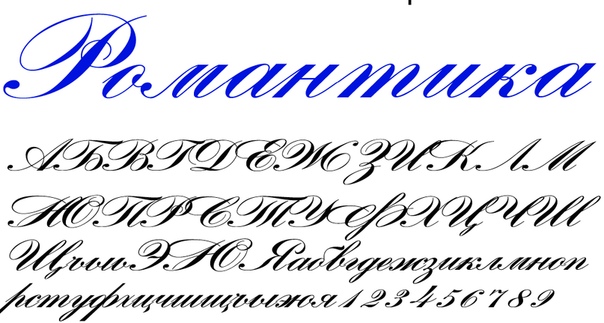 Романтика
АБВГДЕЖЗИКЛМ
НОПРСТУФХЦЧШ
ЩъыьЭЮЯабвгдежзиклмноп
рстуфхцчшщъыьэюя123456789